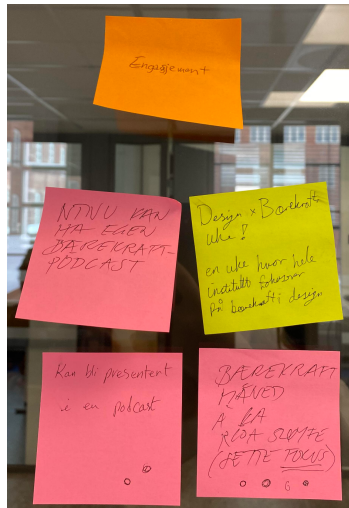 Engasjement
NTNU KAN
HA EGEN
BÆREKRAFT-
PODCAST
Design x Bærekraft
uke!
en uke hvor hele
institutt fokuserer
på bærekraft i design
Kan bli presentert
i en podcast
BÆREKRAFT
MÅNED
A LA
(SETTE FOKUS)